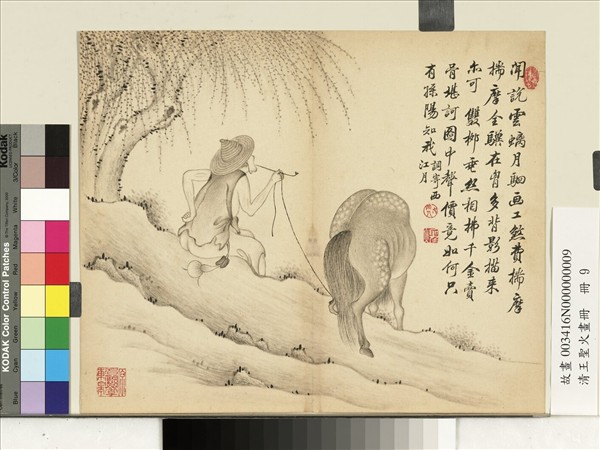 聞說雲螭月駟画工煞費揣摩
揣摩全驥在胷多背影描來
尔可雙柳垂然相拂千金賣
骨堪訶圖中聲價竟如何只
有孫陽知我
調寄西
江月
故畫 003416N000000009
清王聖火畫冊 冊 9
Kodak
KODAK Color Control Patches
Blue
Cyan
Green
Yellow
Red
Magenta
White
Black